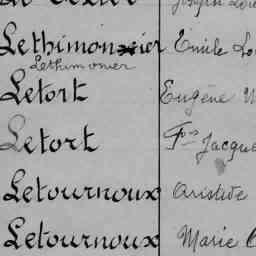 Lethimonnier Emile
Lethimonier
Letort Eugène
Letort Fois Jacque
Letournoux Aristide
Letournoux Marie